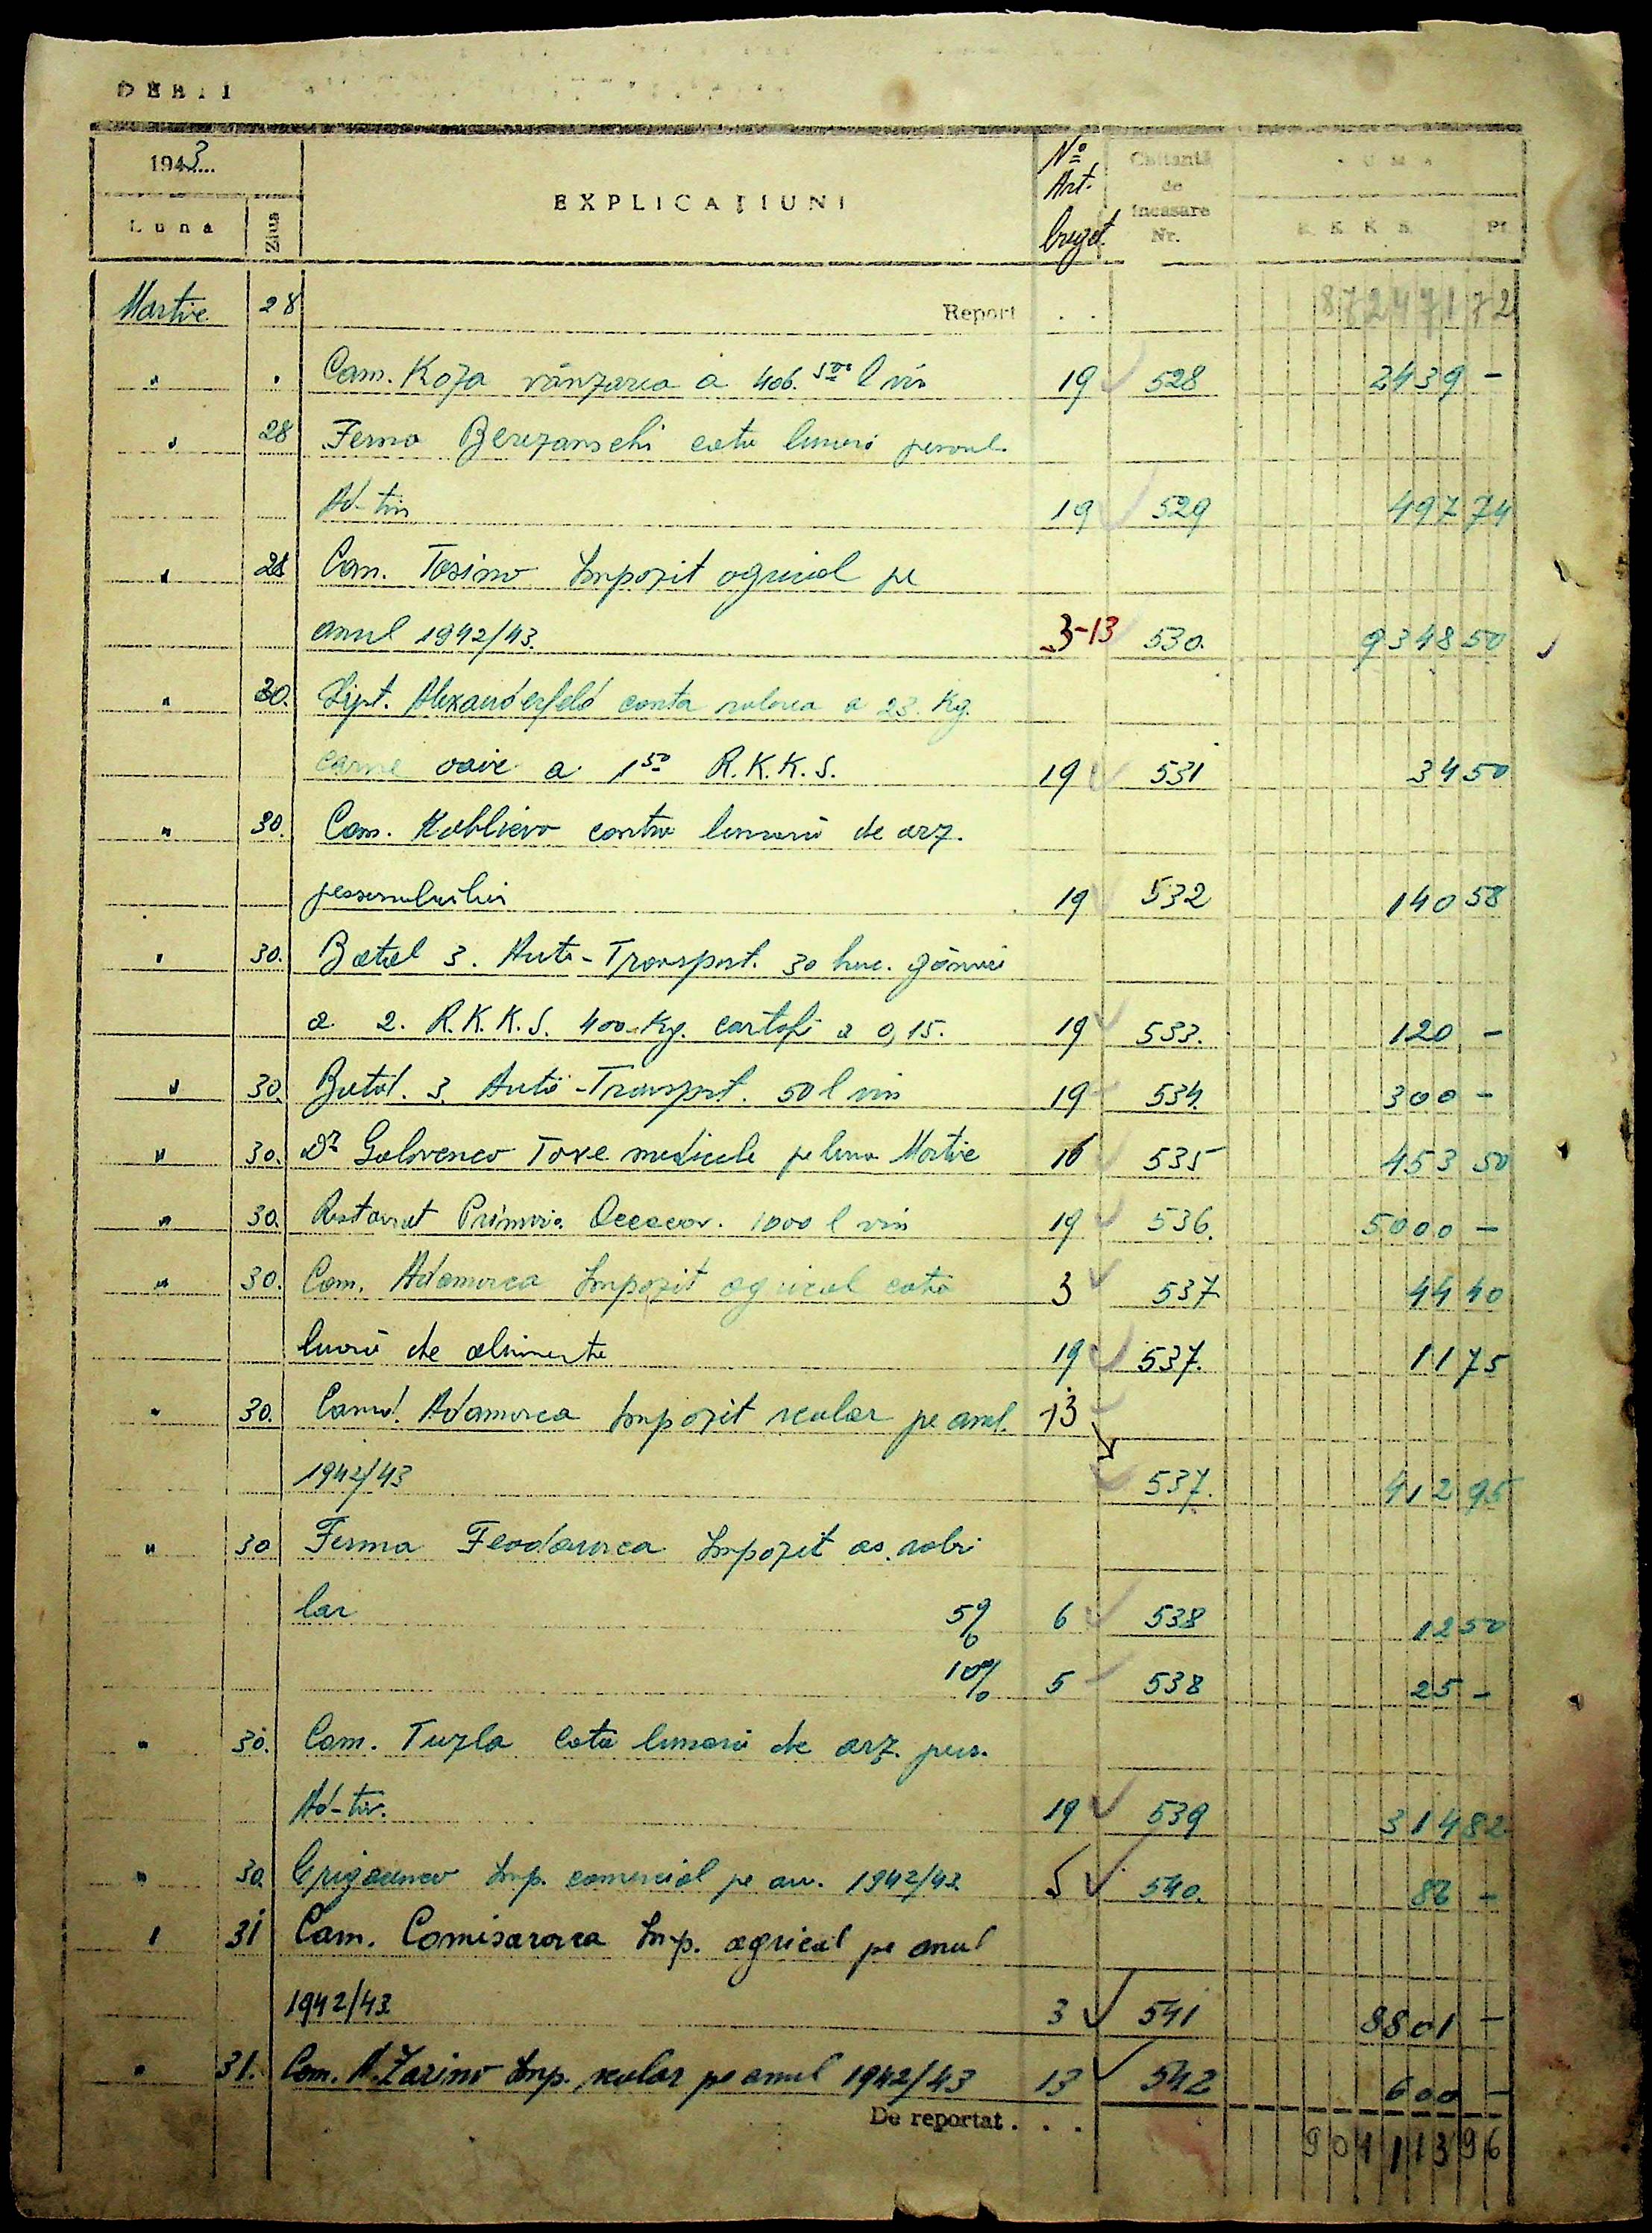 DEBIT
1943
Luna Ziua EXPLICAȚIUNI No Art. buget. Chitanță de încasare Nr. SUMA R. K. K. S. Pf.
Martie 28 Report . . 872471 72
" " Com. Koza vânzarea a 406.500 l vin 19 528 2439 -
" 28 Ferma Berezanschi cota
Ad-tiv 19 529 497 74
" 28 Com. Tasino Impozit agricol pe
anul 1942/43. 3-13 530. 9348 50
" 30. Alexanderfeld a 23. Kg.
carne oaie a 1 50 R.K.K.S. 19 531 34 50
" 30. Com. Kablievo lunară de arz.
19 532 140 58
" 30. Batal 3. Auto-Transport. 30 buc. găini
a 2. R.K.K.S. 400 Kg. cartofi a 0,15. 19 533. 120 -
" 30. Batal. 3. Auto-Transport. 50 l vin 19 534. 300 -
" 30. Dr Golovenco Taxe medicale pe luna Martie 16 535 453 50
" 30. Primăria 1000 l vin 19 536. 5000 -
" 30. Com. Adamovca Impozit agricol cota 3 537 44 40
de alimente 19 537. 11 75
" 30. Adamovca Impozit scolar pe anul. 13
1942/43 537. 412 95
" 30 Ferma Feodorovca Impozit as. salri
lar 5% 6 538 12 50
10% 5 538 25 -
" 30. Com. Tuzla cota lunară de arz. pers.
Ad-tiv. 19 539 314 82
" 30. Imp. comercial pe an. 1942/43 5 540. -
" 31 Com. Comisarovca Imp. agricol pe anul
1942/43 3 541 8801 -
" 31. Com. Imp. scolar pe anul 1942/43 13 542 600 -
De reportat . . . 901113 96